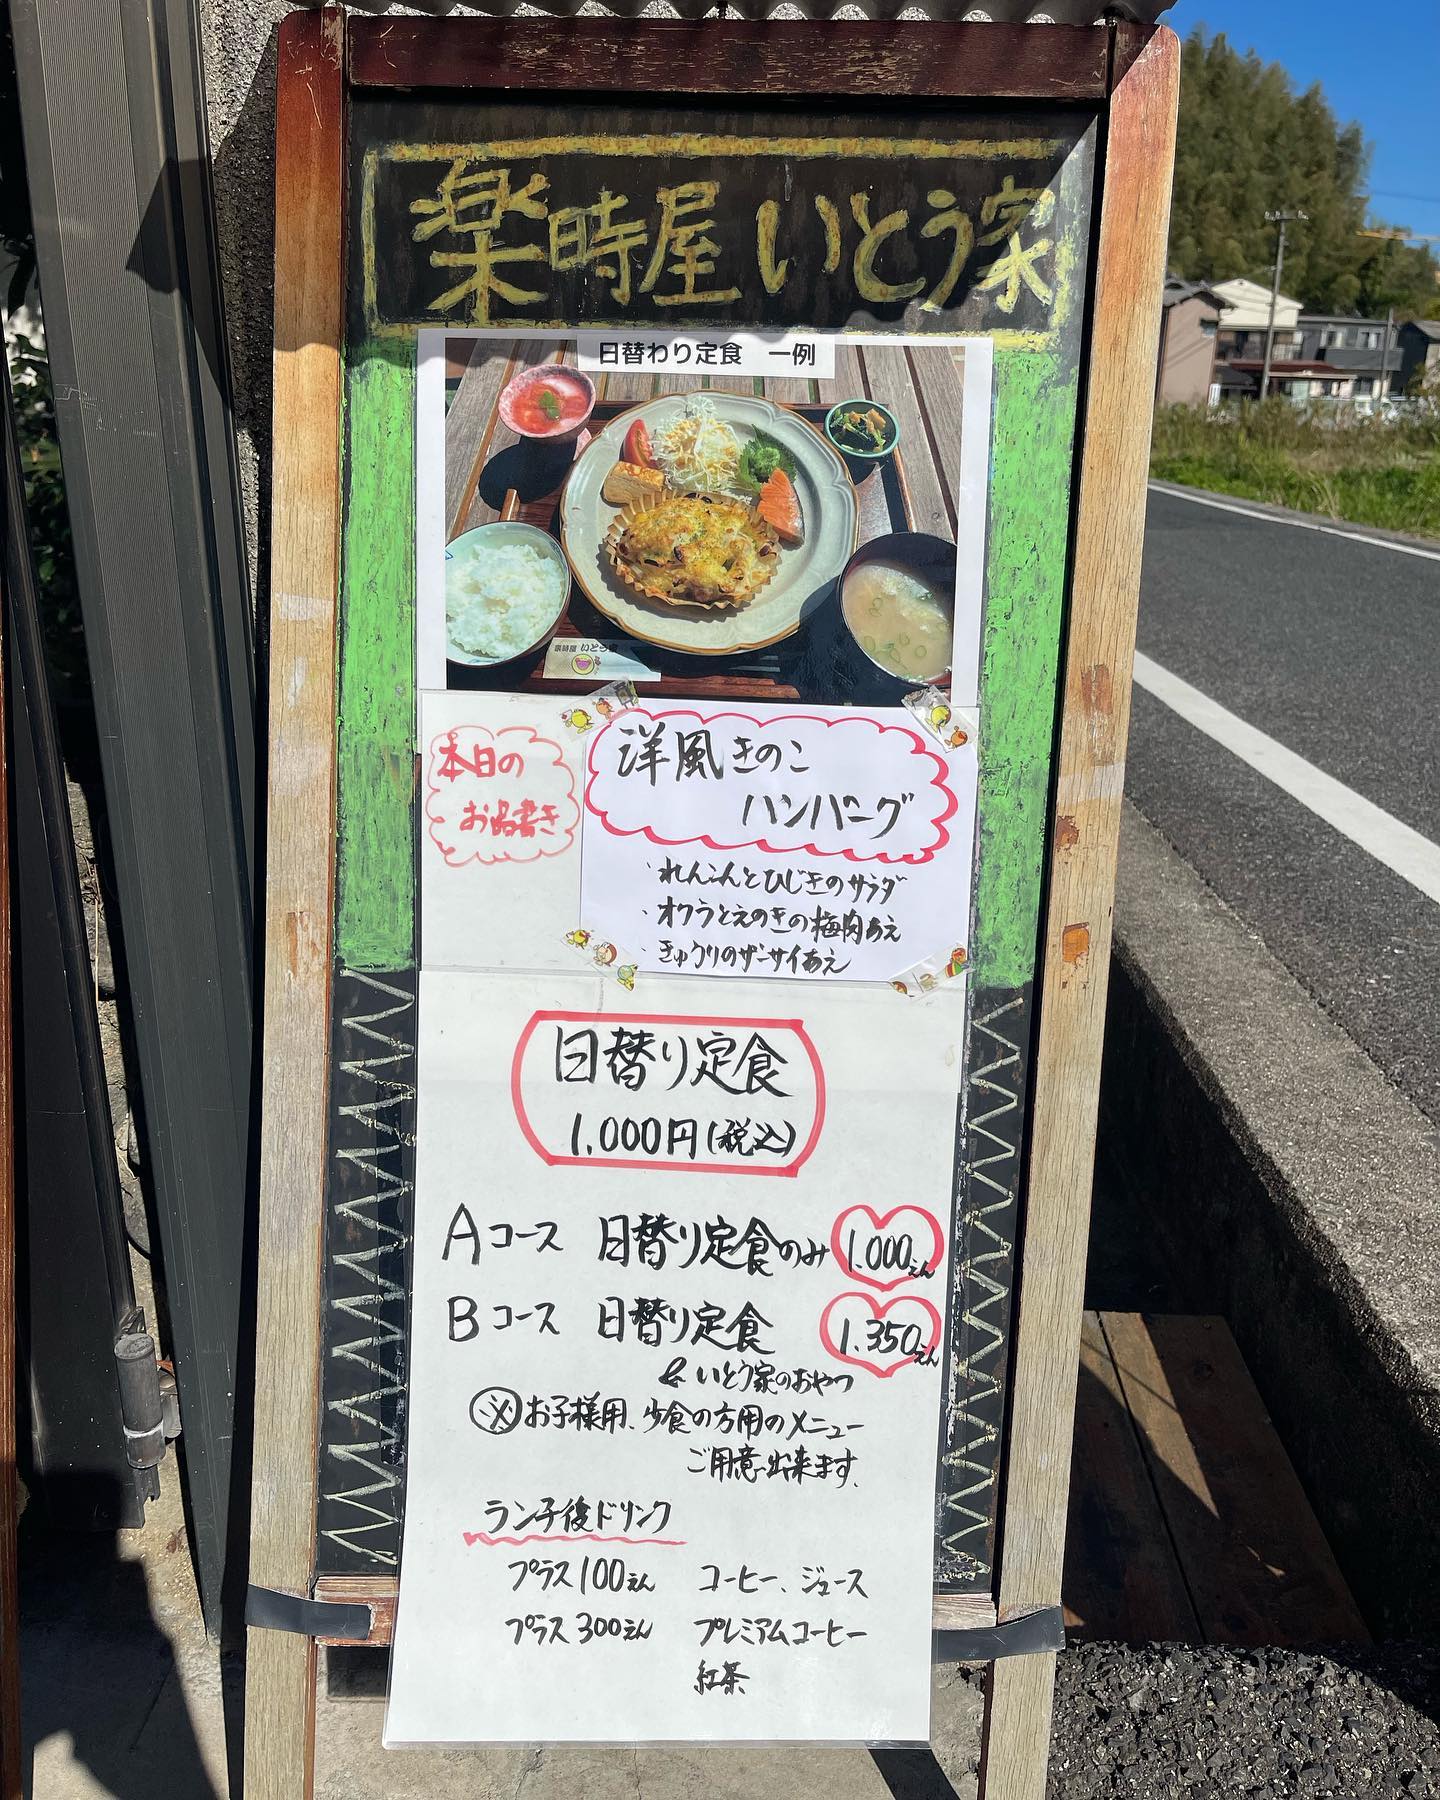 楽時屋 いとう家
日替わり定食 一例
楽時屋 いとう家
本日の
お品書き
洋風きのこ
ハンバーグ
・れんこんとひじきのサラダ
・オクラとえのきの梅肉あえ
・きゅうりのザーサイあえ
日替り定食
1,000円(税込)
Aコース 日替り定食のみ 1,000えん
Bコース 日替り定食 1,350えん
& いとう家のおやつ
※お子様用、少食の方用のメニュー
ご用意出来ます。
ランチ後ドリンク
プラス100えん コーヒー、ジュース
プラス300えん プレミアムコーヒー
紅茶